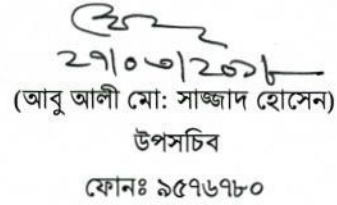 ২৭|০৩|২০১৮
(আবু আলী মো: সাজ্জাদ হোসেন)
উপসচিব
ফোনঃ ৯৫৭৬৭৮০